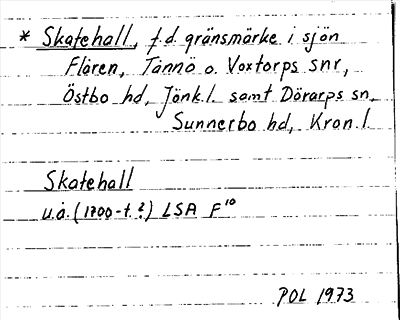 * Skatehall, f.d. gränsmärke i sjön
Flåren, Tånnö o. Voxtorps snr,
Östbo hd, Jönk.l. samt Dörarps sn,
Sunnerbo hd, Kron.l
Skatehall
u.å. (1700-t.?) LSA F¹⁰
POL 1973